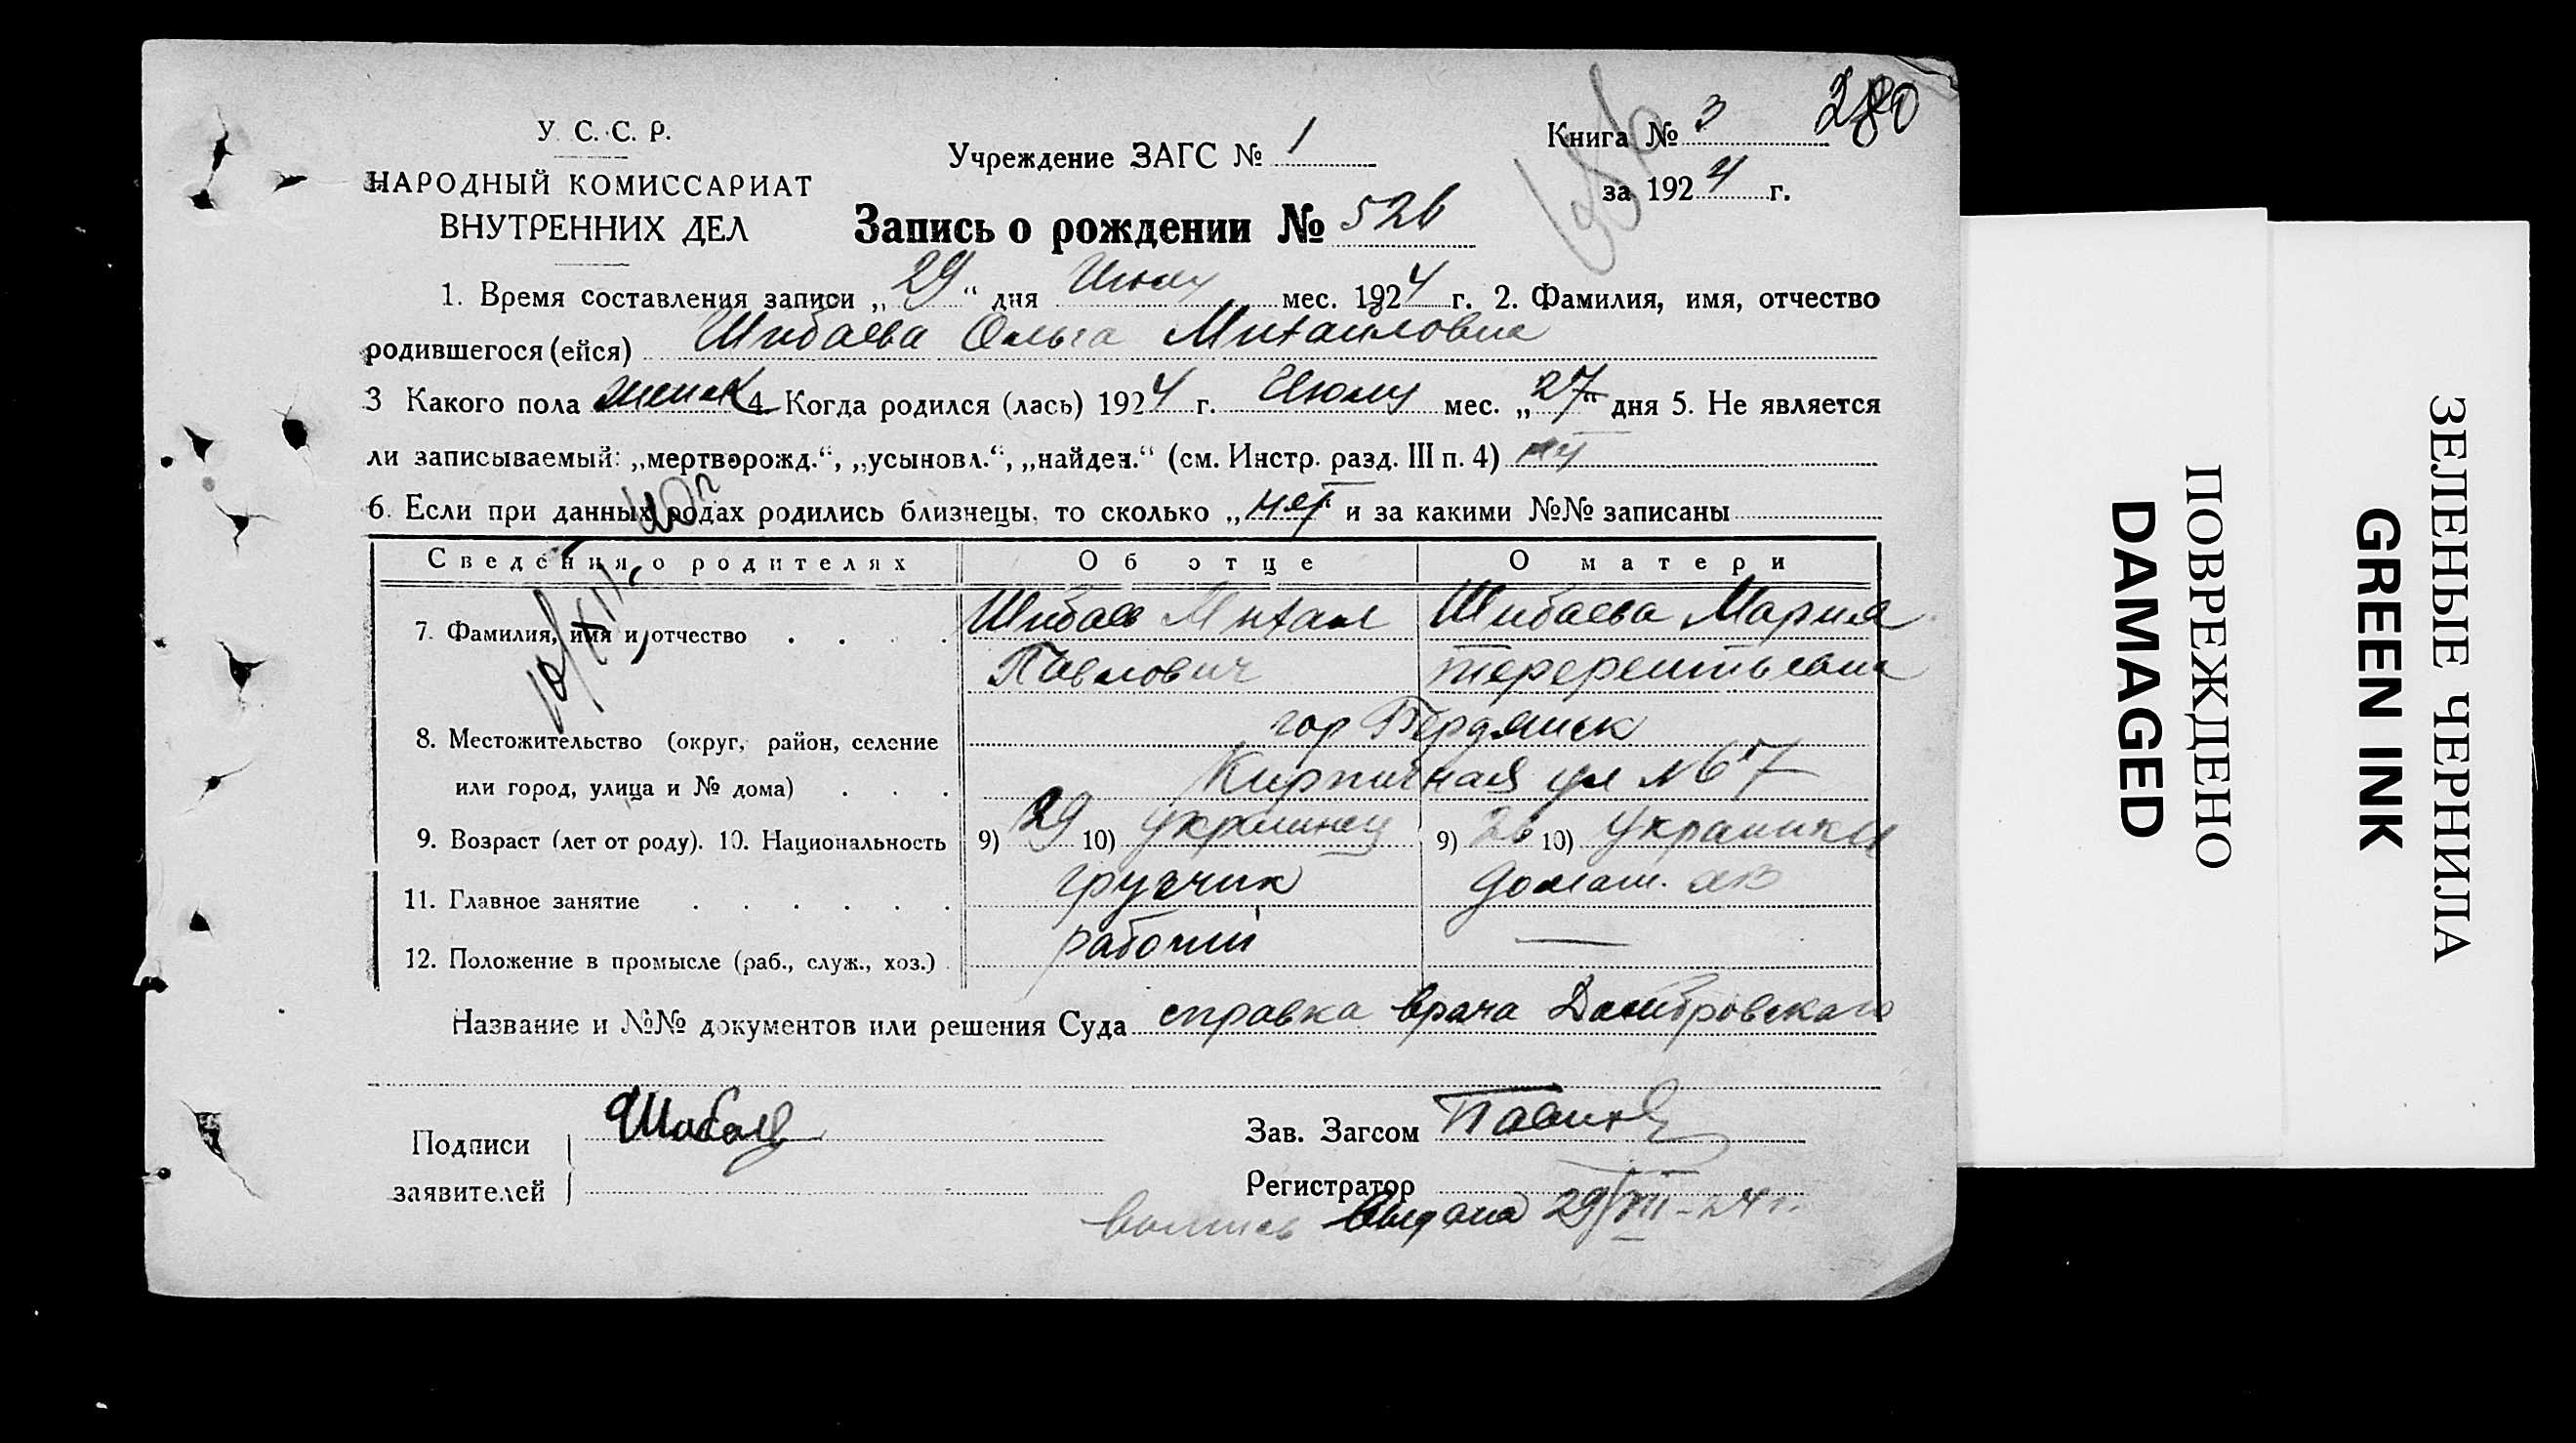 У. С. С. Р.
НАРОДНЫЙ КОМИССАРИАТ
ВНУТРЕННИХ ДЕЛ
Учреждение ЗАГС № 1
Книга № 3 280
за 1924 г.
Запись о рождении № 526
1. Время составления записи „29“ дня Июля мес. 1924 г. 2. Фамилия, имя, отчество
родившегося (ейся) Шибаева Ольга Михайловна
3 Какого пола женск 4. Когда родился (лась) 1924 г. Июля мес. „27“ дня 5. Не является
ли записываемый: „мертворожд.“, „усыновл.“, „найден.“ (см. Инстр. разд. III п. 4) нет
6. Если при данных родах родились близнецы, то сколько „нет“ и за какими №№ записаны
Сведения о родителях Об отце О матери
7. Фамилия, имя и отчество Шибаев Михаил Шибаева Мария
Павлович Терентьевна
гор Бердянск
8. Местожительство (округ, район, селение
Кирпичная ул № 67
или город, улица и № дома)
9. Возраст (лет от роду). 10. Национальность 9) 29 10) Украинец 9) 26 10) Украинка
11. Главное занятие грузчик домаш. хоз
12. Положение в промысле (раб., служ., хоз.) рабочий —
Название и №№ документов или решения Суда справка врача Домбровского
Подписи заявителей Шибаев
Зав. Загсом
Регистратор
выпись выдана 29/VII-24 г.
ПОВРЕЖДЕНО
DAMAGED
ЗЕЛЕНЫЕ ЧЕРНИЛА
GREEN INK